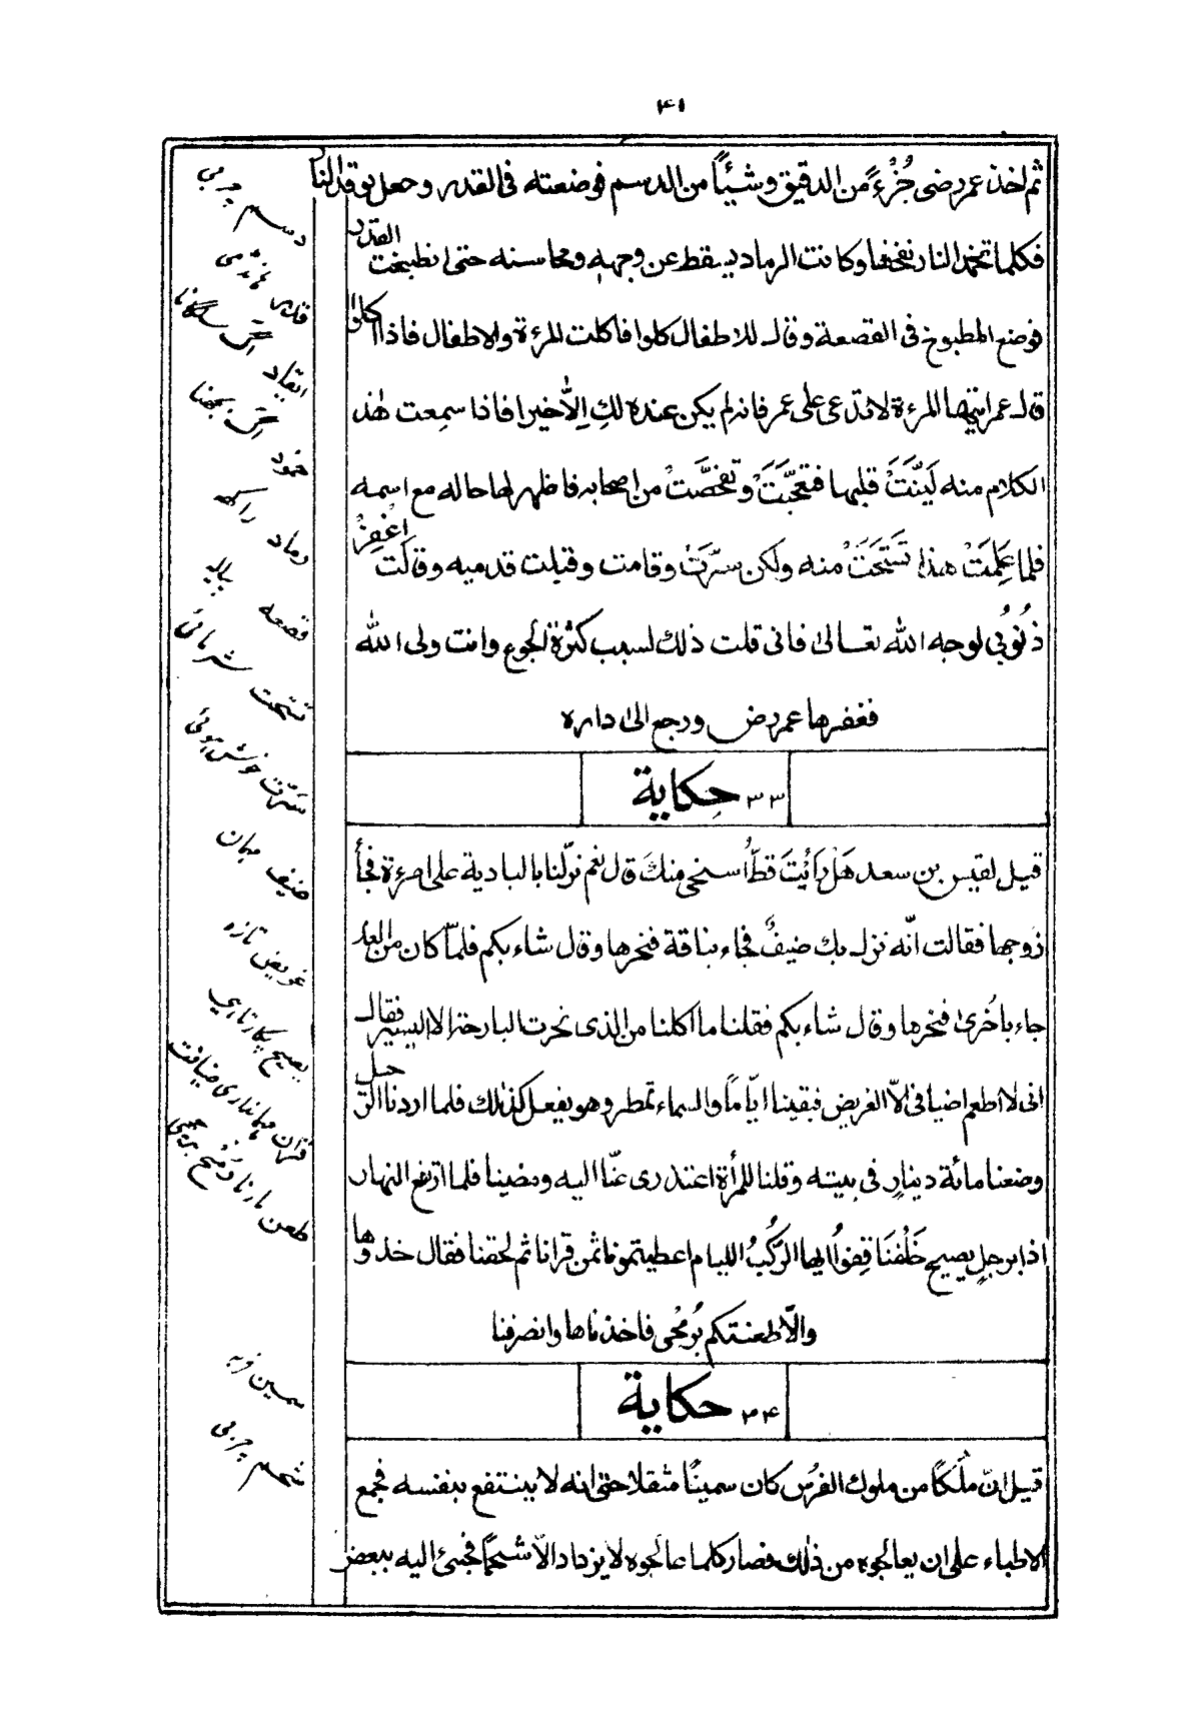 ۴۱
ثم اخذ عمر رضی جُزْءً من الدقیق وشیئًا من الدسم فوضعته فی القدر وجعل یوقد النار
فکلما تخمد النار نفخها وکانت الرماد یسقط عن وجهه ومحاسنه حتی انطبخت القدر
فوضع المطبوخ فی القصعة وقال للاطفال کلوا فاکلت المرءة والاطفال فاذا اکلوا
قال عمر ایتها المرءة لا تدعی علی عمر فانه لم یکن عنده لكِ اِلاّ خیرا فاذا سمِعت هٰذ
الکلام منه لَیَّنَتْ قلبها فتعجَّبَتْ وتفحَّصَتْ من اصحابه فاظهر لها حاله مع اسمه
فلما عَلِمَتْ هذا تَسْتَحَتْ منه ولکن سرّتْ وقامت وقبلت قدمیه وقالت اغْفِرْ
ذُنُوبی لوجه الله تعالیٰ فانی قلت ذلك لسبب کثرة الجوع وانت ولی الله
فغفرها عمر رض ورجع الیٰ داره
۳۳ حِکایة
قیل لقیس بن سعد هَلْ رَأیْتَ قطّ أسخی منكَ قال نعم نزلنا بالبادیة علی امرءة فجأ
زوجها فقالت انّه نزل بك ضیفٌ فجاء بناقة فنحرها وقال شاء بکم فلمّا کان من الغد
جاء باُخریٰ فنحرها وقال شاء بکم فقلنا ما اکلنا من الذی نحرت البارحة الا الیسیر فقال
انی لا اطعم اضیافی الاّ الغریض فبقینا ایّاماً والسماء تمطر وهو یفعل کذٰلك فلما اردنا الرّحیل
وضعنا مائة دینارٍ فی بیته وقلنا للمرأة اعتذری عنّا الیه ومضینا فلما ارتفع النهار
اذا برجلٍ یصیح خَلْفَنَا قِفوا ایها الرّکبُ اللیام اعطیتمونا ثمن قرانا ثم لحقنا فقال خذوها
والاّ طعنتکم بُرمْحی فاخذناها وانصرفنا
۳۴ حکایة
قیل انّ ملَکاً من ملوك الفرُس کان سمینًا مثقلا حتی انه لا ینتفع بنفسه فجمع
الاطباء علی ان یعالجوه من ذٰلك فصار کلما عالجوه لا یزداد الاّ شحمًا فجئ الیه ببعض
دسم چربی
قدر هانڈی
ایقاد آگ سلگانا
خمود آگ بجھنا
رماد راکھ
قصعه پیالہ
تستحت شرمائی
سرّت خوش ہوئی
ضیف مہمان
غریض تازہ
یصیح پکارتا ہے
قران مہمانداری ضیافت
طعن مارنا زخم برچھی
سمین فربہ
شحم چربی